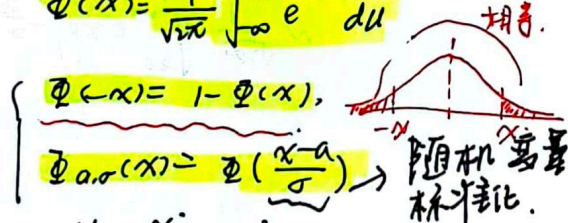 Φ(x)= 1/√2π ∫-∞ e du
相等.
Φ(-x)= 1-Φ(x),
-x x
Φa,σ(x)= Φ(x-a/σ) → 随机变量
标准化.